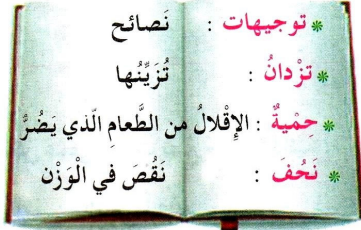 * توجيهات : نَصائح
* تزْدانُ : تُزَيِّنُها
* حِمْيةٌ : الإِقْلالُ من الطَّعامِ الَّذي يَضُرُّ
* نَحُفَ : نَقُصَ في الْوَزْن